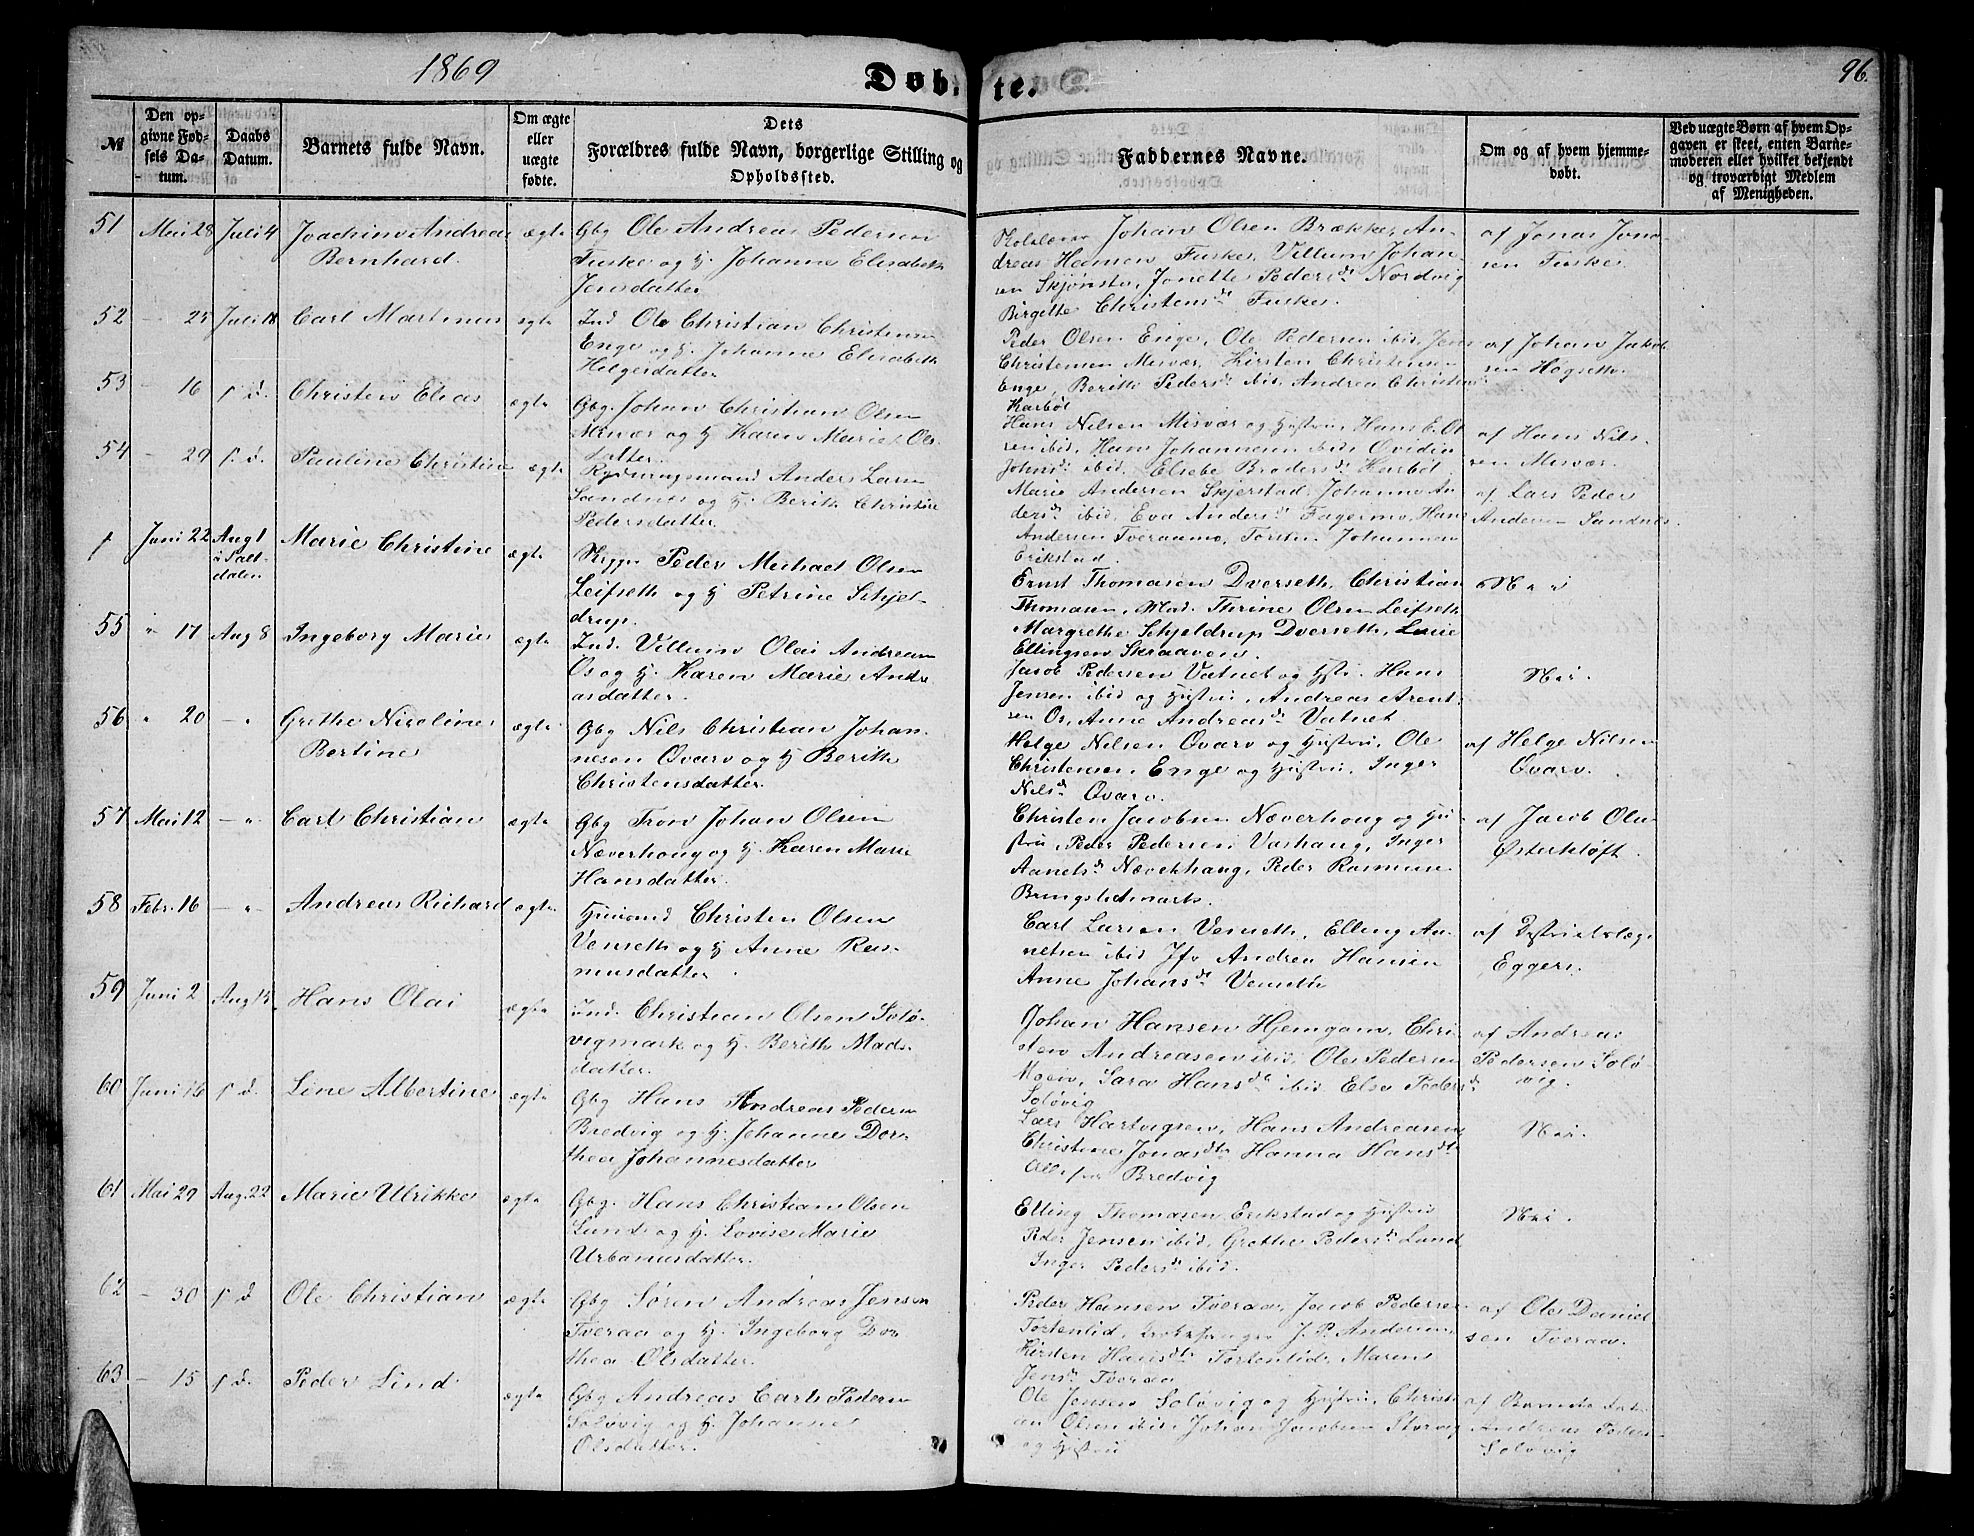 1869
Døbte.
96.
№
Den opgivne Fødsels Datum.
Daabs Datum.
Barnets fulde Navn.
Om ægte eller uægte fødte.
Dets Forældres fulde Navn, borgerlige Stilling og Opholdssted.
Faddernes Navne.
Om og af hvem hjemmedøbt.
Ved uægte Børn af hvem Opgaven er skeet, enten Barnemoderen eller hvilket bekjendt og troværdigt Medlem af Menigheden.
51 Mai 28 Juli 4 Joachim Andreas ægte Gbg Ole Andreas Pedersen
Bernhard. Fuske og H. Johanne Elisabeth
Jensdatter
Johan Olsen Brække, An-
dreas Hansen Fuske, Villum Johan-
sen Skjønsto, Jonette Pedersdt Nordvig
Birgette Christensdt Fuske.
af Jonas Jona-
sen Fuske.
52 - 25 Juli 18 Carl Martinus ægte Ind Ole Christian Christensen
Enge og H. Johanne Elisabeth
Helgesdatter
Peder Olsen Enge, Ole Pedersen ibid, Jens
Christensen Misvær, Kirsten Christensen
Enge, Berith Pedersdt ibid, Andrea Christensdt
Karbøl
af Johan Jakob-
sen Høgseth.
53 - 16 s. d. Christen Elias ægte Gbg. Johan Christian Olsen
Misvær og H Karen Marie Ols-
datter.
Hans Nilsen Misvær og Hustru, Hans E. Ol-
sen ibid, Hans Johannesen ibid, Ovidia
Johnsdt ibid, Elsebe Brodersdt Karbøl
af Hans Nils-
sen Misvær.
54 - 29 s. d. Pauline Christine ægte Rydningsmand Anders Larsen
Sandnes og H. Berith Christine
Pedersdatter.
Marie Andersen Skjerstad, Johanna An-
dersdt ibid, Eva Andersdt Fagermo, Hans
Andersen Tveraamo, Torsten Johannesen
Erikstad.
af Lars Peder
Andersen Sandnes.
1 Juni 22 Aug 1 Marie Christine ægte
i Salt-
dalen
Skipp. Peder Michael Olsen
Leifseth og H Petrine Schjel-
drup.
Ernst Thomasen Dverseth, Christian
Thomasen, Mad. Thrine Olsen Leifseth
Margrethe Schjeldrup Dverseth, Lucie
Ellingsen Skraaven.
Nei
55 " 17 Aug 8 Ingeborg Marie ægte Ind. Villum Olai Andreasen
Os og H. Karen Marie Andre-
asdatter.
Jacob Pedersen Vatnet og Hstr. Hans
Jensen ibid og Hustru, Andreas Arent-
sen Os, Anne Andreasdt Vatnet.
Nei.
56 " 20 - " Grethe Nicoline ægte Gbg Nils Christian Johan-
Bertine nesen Qvarv og H Berith
Christensdatter.
Helge Nilsen Qvarv og Hustru, Ole
Christensen Enge og Hustru, Inger
Nilsdt Qvarv.
af Helge Nilsen
Qvarv.
57 Mai 12 - " Carl Christian ægte Gbg Tron Johan Olsen
Næverhoug og H. Karen Marie
Hansdatter.
Christen Jacobsen Næverhoug og Hu-
stru, Peder Pedersen Vashaug, Inger
Aanetsdt Næverhaug, Peder Rasmusen
Bringslidmark.
af Jacob Olsen
Østerkløft.
58 Febr. 16 - " Andreas Richard ægte Huusmand Christen Olsen
Venseth og H Anne Ras-
musdatter
Carl Larsen Venseth, Elling An-
netsen ibid Jfr Andrea Hansen
Anne Johansdt Venseth
af Distriktslæge
Eggers.
59 Juni 2 Aug 15 Hans Olai ægte Ind. Christian Olsen Solø-
vigmark og H. Berith Mads-
datter.
Johan Hansen Hjemgam, Chri-
sten Andreasen ibid, Ole Pedersen
Moen, Sara Hansdt ibid Else Pedersdt
Soløvig
af Andreas
Pedersen Solø-
vig.
60 Juni 16 s d. Line Albertine ægte Gbg Hans Andreas Pedersen
Bredvig og H. Johanne Doro-
thea Johannesdatter
Lars Hartvigsen, Hans Andreasen
Christine Jonasdtr Hanna Hansdt
Alle fra Bredvig
Nei.
61 Mai 29 Aug. 22 Marie Ulrikke ægte Gbg. Hans Christian Olsen
Lund og H. Lovise Marie
Urbanusdatter.
Elling Thomasen Erikstad og Hustru
Peder Jensen ibid, Grethe Pedersdt Lund
Inger Pedersdt ibid.
Nei.
62 - 30 s d Ole Christian ægte Gbg Søren Andreas Jensen
Tveraa og H. Ingeborg Doro-
thea Olsdatter.
Peder Hansen Tveraa, Jacob Pedersen
Tortenlid, Kirkesanger J. P. Andersen
Kirsten Hansdtr Tortenlid, Maren
Jensdt Tveraa
af Ole Daniel-
sen Tveraa.
63 - 15 s d. Peder Lind ægte Gbg Andreas Carl Pedersen
Soløvig og H. Johanne
Olsdatter.
Ole Jensen Soløvig og Hustru, Christi-
an Olsen ibid, Johan Jacobsen Storvig
og Hustru
af Barnets Fader
Andreas Peders-
Soløvig